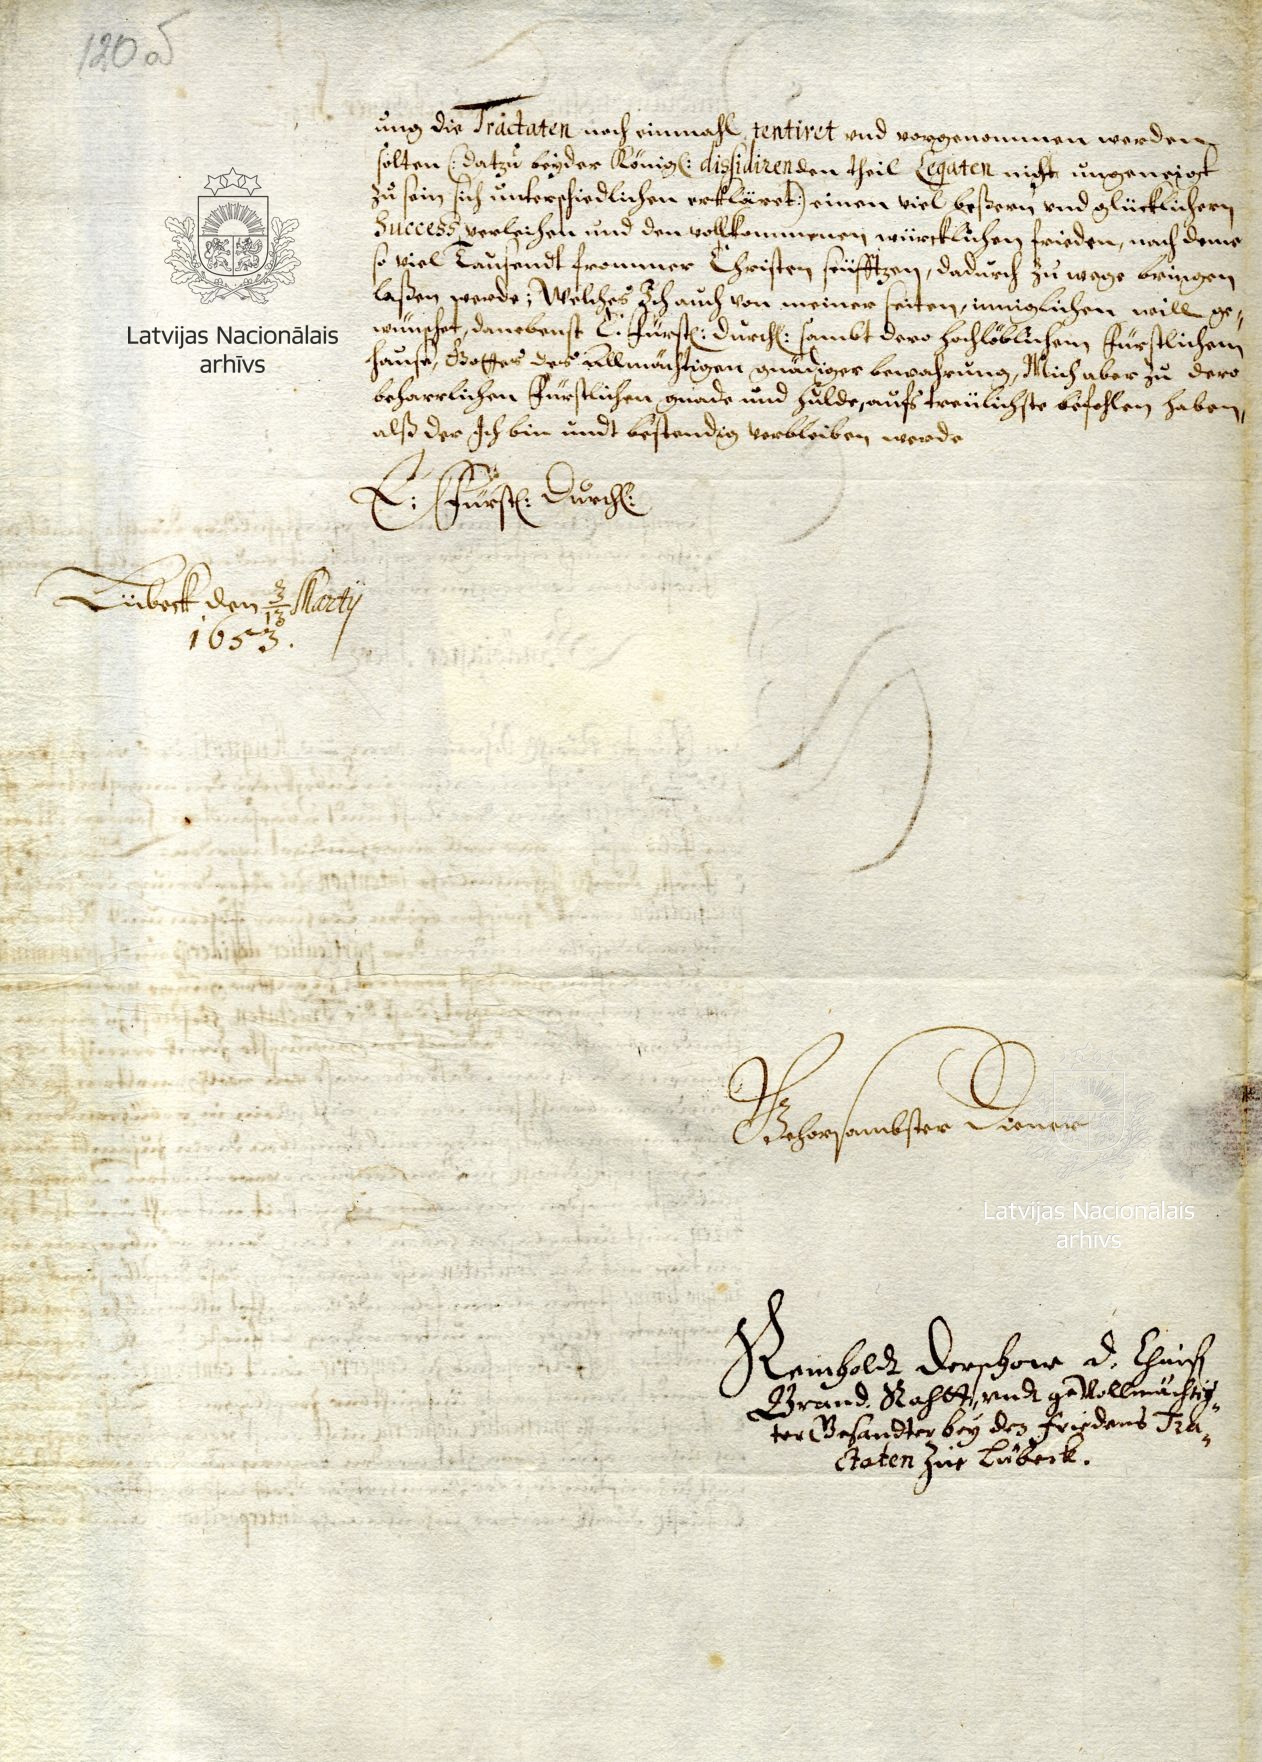 120 a
ung die Tractaten noch einmahl tentiret vnd vorgenommen werden
solten (: datzu beyder Königl: dissidirenden theil Legaten nicht ungeneigt
zu sein sich unterschiedlichen erkläret:) einen viel beßern vnd glücklichern
Success verleihen und den vollkommenen würcklichen frieden, nach deme
so viel Tausendt frommer Christen seüfftzen, dadurch zu wege bringen
laßen werde; Welches Ich auch von meiner seiten, inniglichen will ge-
wünschet, danebenst E: Fürstl: Durchl: sambt dero hochlöblichem Fürstlichem
hause, Gottes des Allmächtigen gnädiger bewahrung, Mich aber zu dero
beharrlichen Fürstlichen gnade und hulde, aufs treülichste befohlen haben,
alß der Ich bin undt bestendig verbleiben werde
E: Fürstl: Durchl:
Lübeck den 3/13 Martij
1653.
Gehorsambster Diener
Reinholdt Derschow D. Churf
Brand. Rahtt, vndt gevollmächtig-
ter Gesandter bey den friedens Tra-
ctaten zue Lübeck.
Latvijas Nacionālais
arhīvs
Latvijas Nacionālais
arhīvs